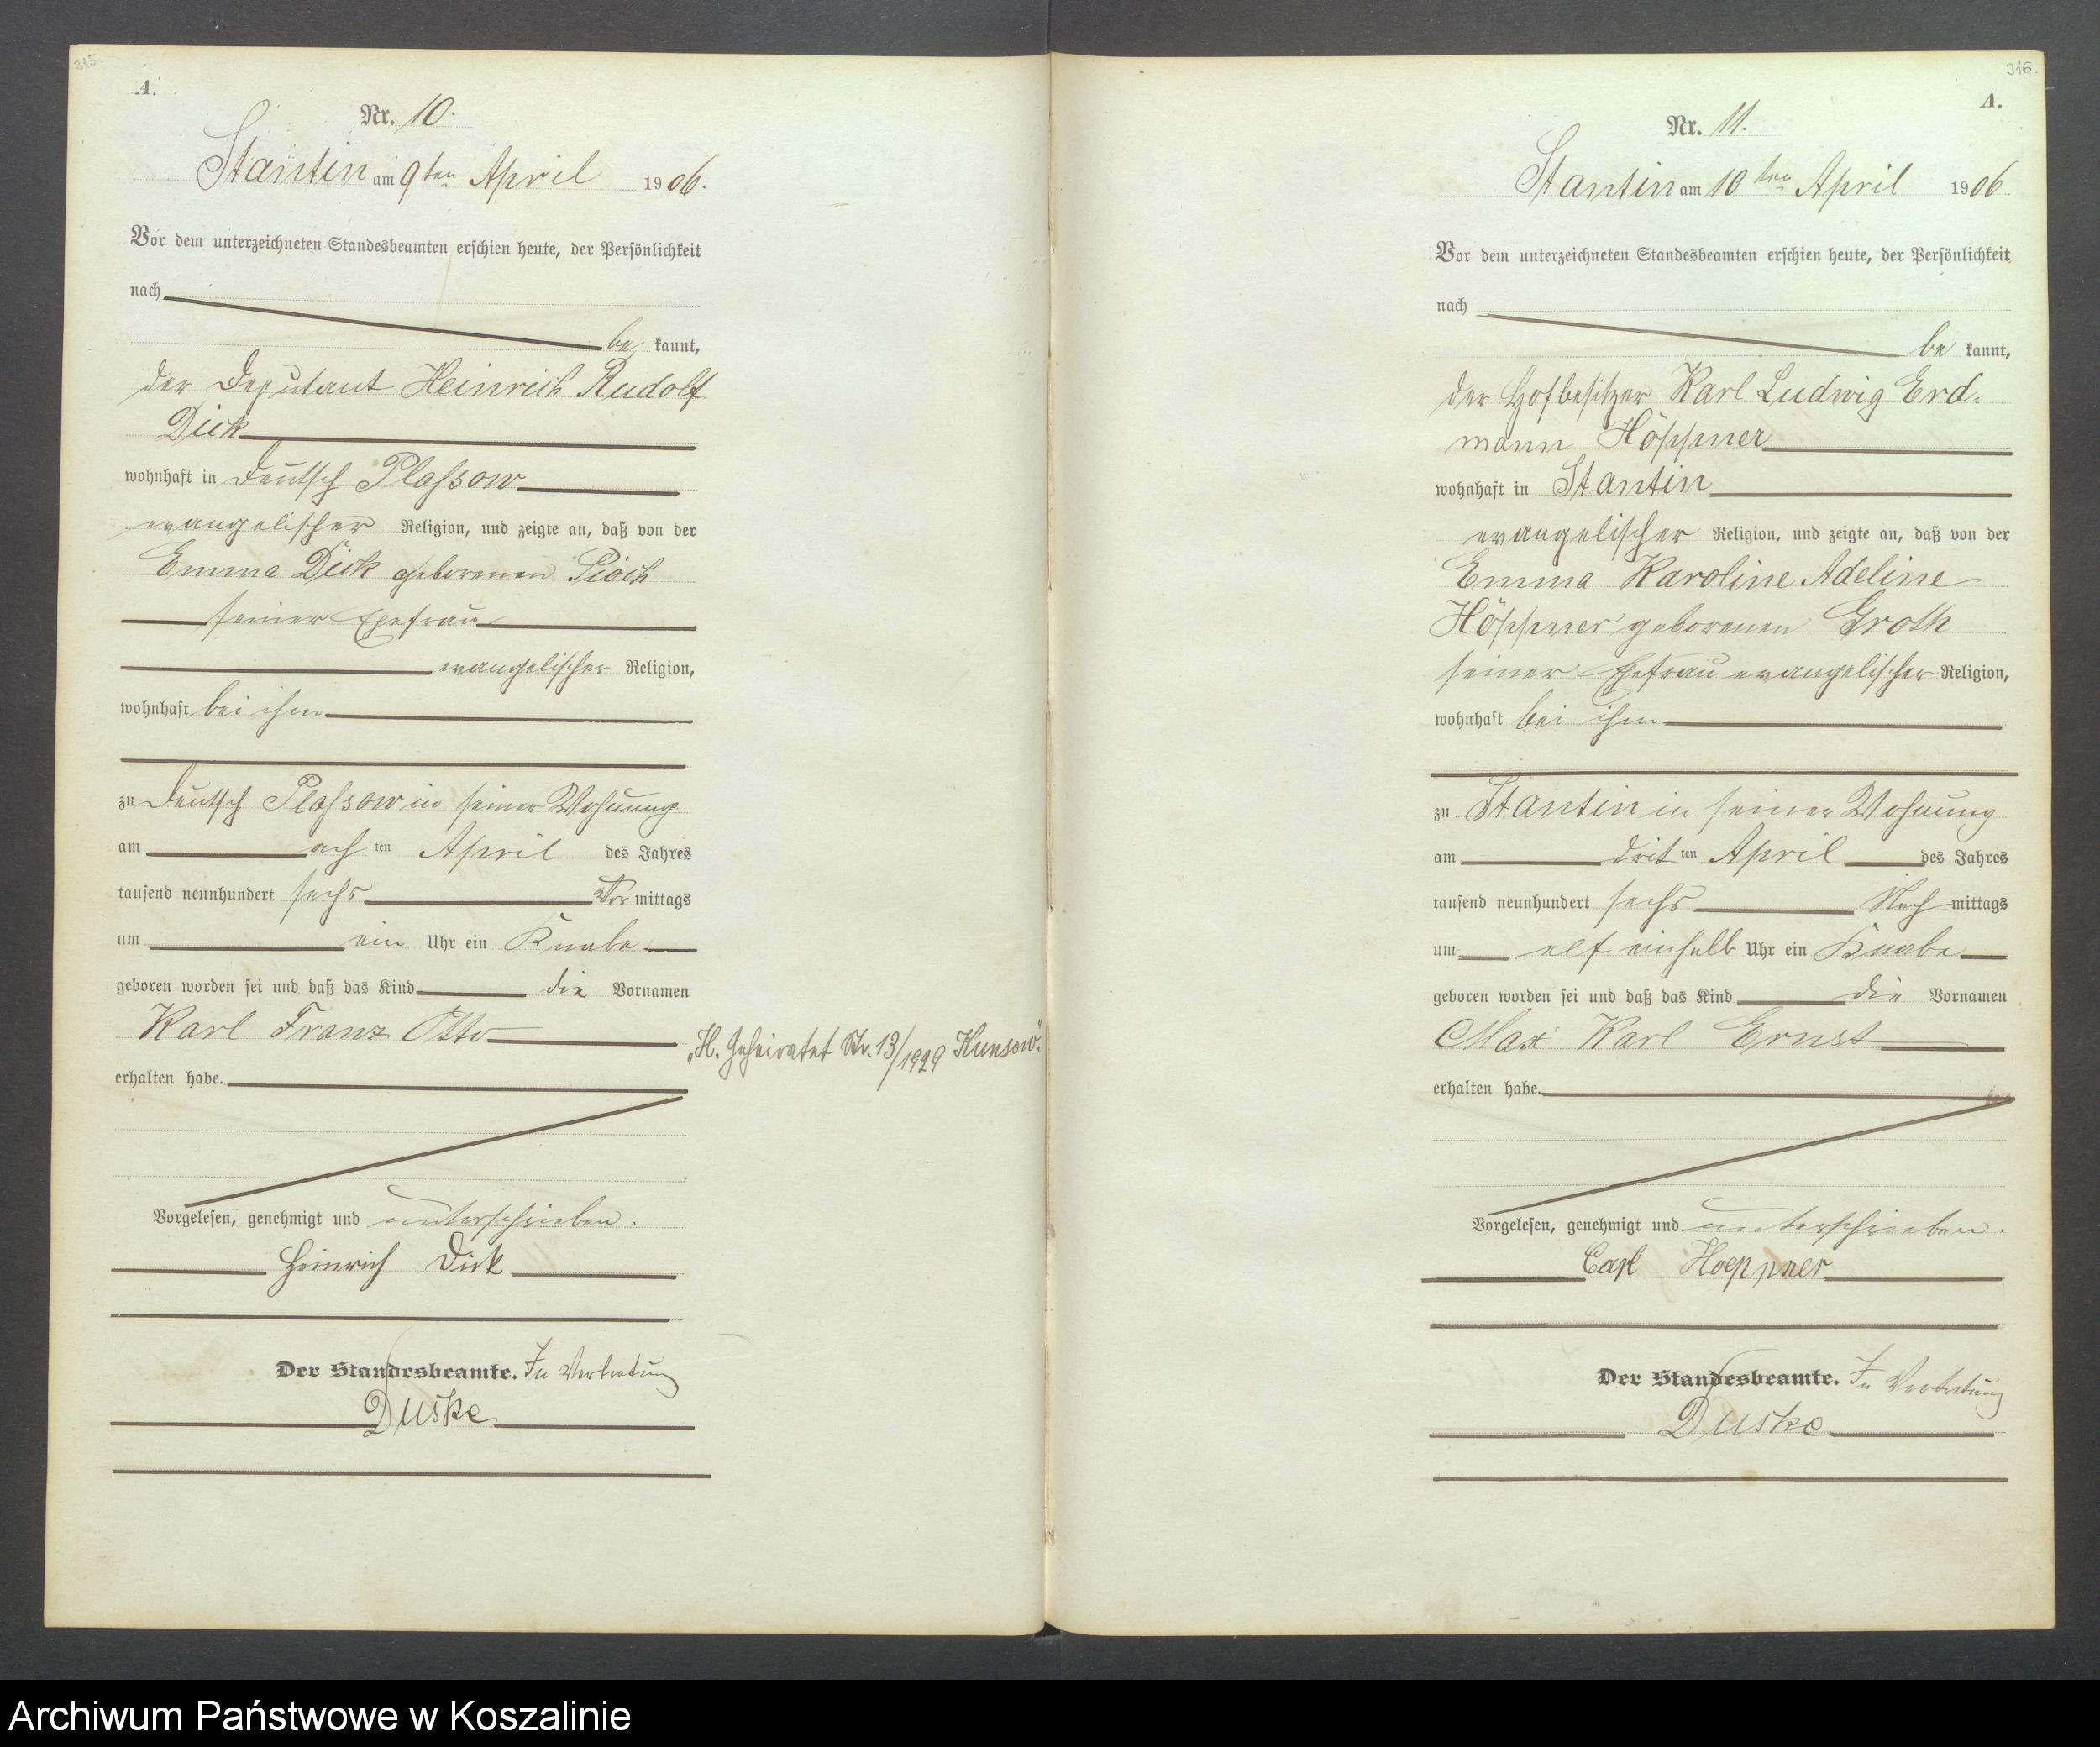 315.
A.
Nr. 10.
Stantin am 9ten April 1906.
Vor dem unterzeichneten Standesbeamten erschien heute, der Persönlichkeit
nach
be kannt,
der Deputant Heinrich Rudolf
Dick
wohnhaft in Deutsch Plassow
evangelischer Religion, und zeigte an, daß von der
Emma Dick geborenen Pioch
seiner Ehefrau
evangelischer Religion,
wohnhaft bei ihm
zu Deutsch Plassow in seiner Wohnung
am ach ten April des Jahres
tausend neunhundert sechs Vor mittags
um ein Uhr ein Knabe
geboren worden sei und daß das Kind die Vornamen
Karl Franz Otto
„H. Geheiratet Nr. 13/1929 Kunsow".
erhalten habe.
Vorgelesen, genehmigt und unterschrieben.
Heinrich Dick
Der Standesbeamte. In Vertretung
Duske
316.
A.
Nr. 11.
Stantin am 10ten April 1906
Vor dem unterzeichneten Standesbeamten erschien heute, der Persönlichkeit
nach
be kannt,
der Hofbesitzer Karl Ludwig Erd-
mann Höppner
wohnhaft in Stantin
evangelischer Religion, und zeigte an, daß von der
Emma Karoline Adeline
Höppner geborenen Groth
seiner Ehefrau evangelischer Religion,
wohnhaft bei ihm
zu Stantin in seiner Wohnung
am drit ten April des Jahres
tausend neunhundert sechs Nach mittags
um elf einhalb Uhr ein Knabe
geboren worden sei und daß das Kind die Vornamen
Max Karl Ernst
erhalten habe.
Vorgelesen, genehmigt und unterschrieben.
Carl Hoeppner
Der Standesbeamte. In Vertretung
Duske
Archiwum Państwowe w Koszalinie